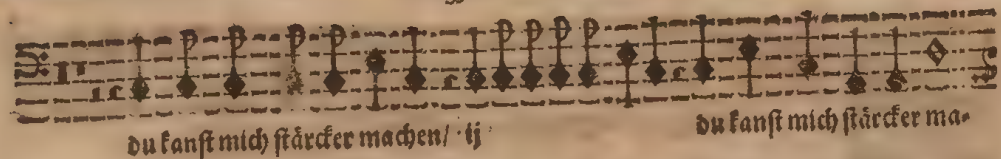 du kanſt mich ſtärcker machen/ ·ij· du kanſt mich ſtärcker ma⸗